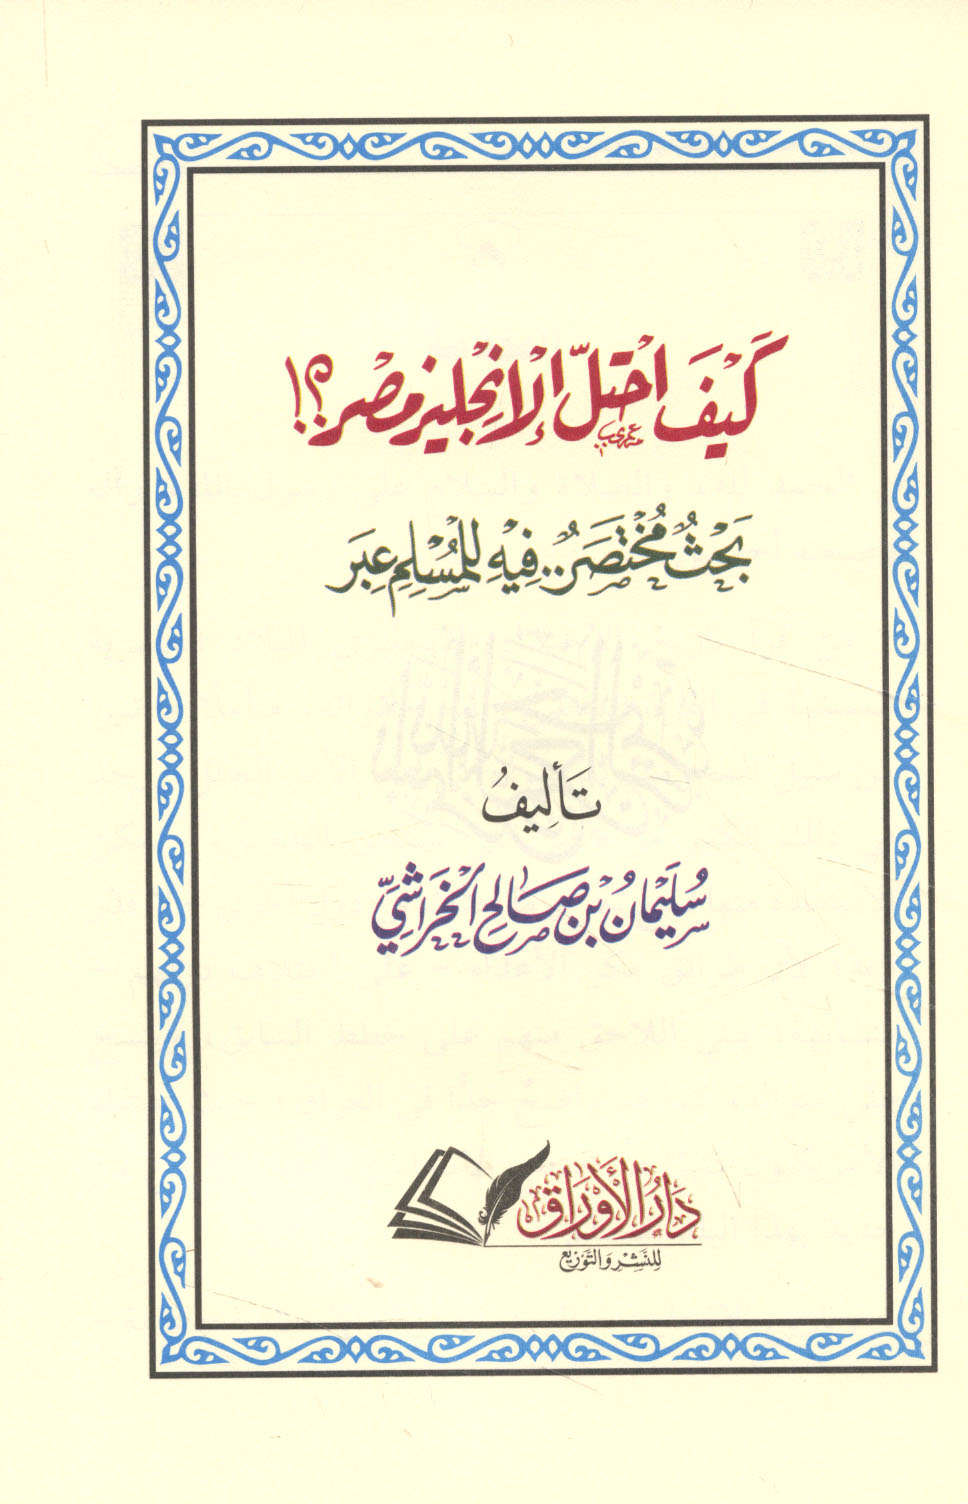 كَيْفَ احْتَلَّ الإِنْجِليز مصر؟!
بَحْثٌ مُخْتَصَرٌ.. فِيْهِ لِلْمُسْلِمِ عِبَر
تَأليفُ
سُلَيْمانُ بْن صَالِح الْخَرَاشِيّ
دَارُ الأَوْرَاق
لِلنَّشْرِ وَالتَّوْزِيع